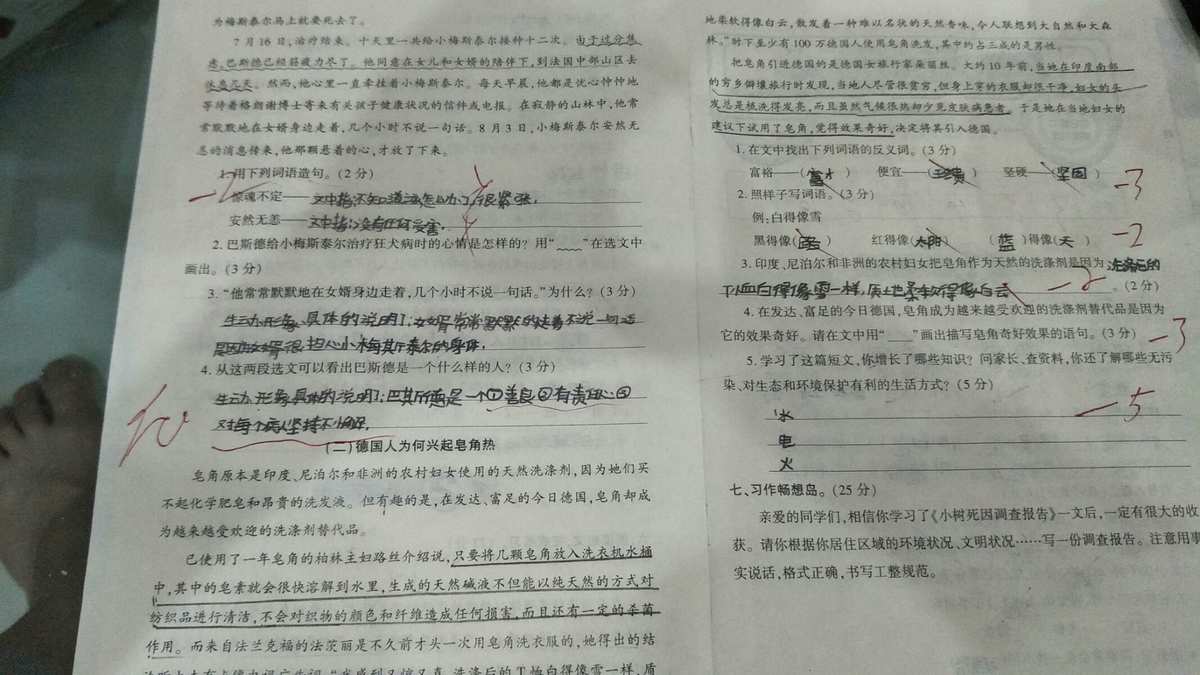 为梅斯泰尔马上就要死去了。
7月16日,治疗结束。十天里一共给小梅斯泰尔接种十二次。由于过分焦
虑,巴斯德已经筋疲力尽了。他同意在女儿和女婿的陪伴下,到法国中部山区去
休息几天。然而,他心里一直牵挂着小梅斯泰尔。每天早晨,他都是忧心忡忡地
等待着格朗谢博士寄来有关孩子健康状况的信件或电报。在寂静的山林中,他常
常默默地在女婿身边走着,几个小时不说一句话。8月3日,小梅斯泰尔安然无
恙的消息传来,他那颗悬着的心,才放了下来。
1.用下列词语造句。(2分)
-2
惊魂不定——文中指:不知道该怎么办了,很紧张.
安然无恙——文中指:没有任何受害.
2.巴斯德给小梅斯泰尔治疗狂犬病时的心情是怎样的?用“﹏﹏”在选文中
画出。(3分)
3.“他常常默默地在女婿身边走着,几个小时不说一句话。”为什么?(3分)
生动形象、具体的说明了:女婿常常默默的走着不说一句话
是因女婿很担心小梅斯泰尔的身体.
4.从这两段选文可以看出巴斯德是一个什么样的人?(3分)
生动、形象具体的说明了:巴斯德是一个①善良②有责任心③
对每个病人坚持不懈.
(二)德国人为何兴起皂角热
皂角原本是印度、尼泊尔和非洲的农村妇女使用的天然洗涤剂,因为她们买
不起化学肥皂和昂贵的洗发液。但有趣的是,在发达、富足的今日德国,皂角却成
为越来越受欢迎的洗涤剂替代品。
已使用了一年皂角的柏林主妇路丝介绍说,只要将几颗皂角放入洗衣机水桶
中,其中的皂素就会很快溶解到水里,生成的天然碱液不但能以纯天然的方式对
纺织品进行清洁,不会对织物的颜色和纤维造成任何损害,而且还有一定的杀菌
作用。而来自法兰克福的法茨丽是不久前才头一次用皂角洗衣服的,她得出的结
洗涤后的T恤白得像雪一样,质
地柔软得像白云,散发着一种难以名状的天然香味,令人联想到大自然和大森
林。”时下至少有100万德国人使用皂角洗发,其中约占三成的是男性。
把皂角引进德国的是德国女旅行家朵丽丝。大约10年前,当她在印度南部
的穷乡僻壤旅行时发现,当地人尽管很贫穷,但身上穿的衣服却很干净,妇女的头
发总是梳洗得发亮,而且虽然气候很热却少见皮肤病患者。于是她在当地妇女的
建议下试用了皂角,觉得效果奇好,决定将其引入德国。
1.在文中找出下列词语的反义词。(3分)
富裕——( ) 便宜——( ) 坚硬——(坚固)
-3
2.照样子写词语。(3分)
例:白得像雪
黑得像( ) 红得像(太阳) (蓝)得像(天)
-2
3.印度、尼泊尔和非洲的农村妇女把皂角作为天然的洗涤剂是因为洗涤后的
T恤白得像雪一样,质地柔软得像白云。(2分)
-2
4.在发达、富足的今日德国,皂角成为越来越受欢迎的洗涤剂替代品是因为
它的效果奇好。请在文中用“____”画出描写皂角奇好效果的语句。(3分)
-3
5.学习了这篇短文,你增长了哪些知识?问家长、查资料,你还了解哪些无污
染、对生态和环境保护有利的生活方式?(5分)
水
-5
电
火
七、习作畅想岛。(25分)
亲爱的同学们,相信你学习了《小树死因调查报告》一文后,一定有很大的收
获。请你根据你居住区域的环境状况、文明状况……写一份调查报告。注意用事
实说话,格式正确,书写工整规范。